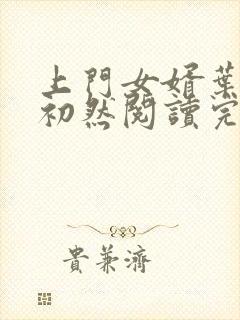 上門女婿葉
初然閱讀完
貴兼濟